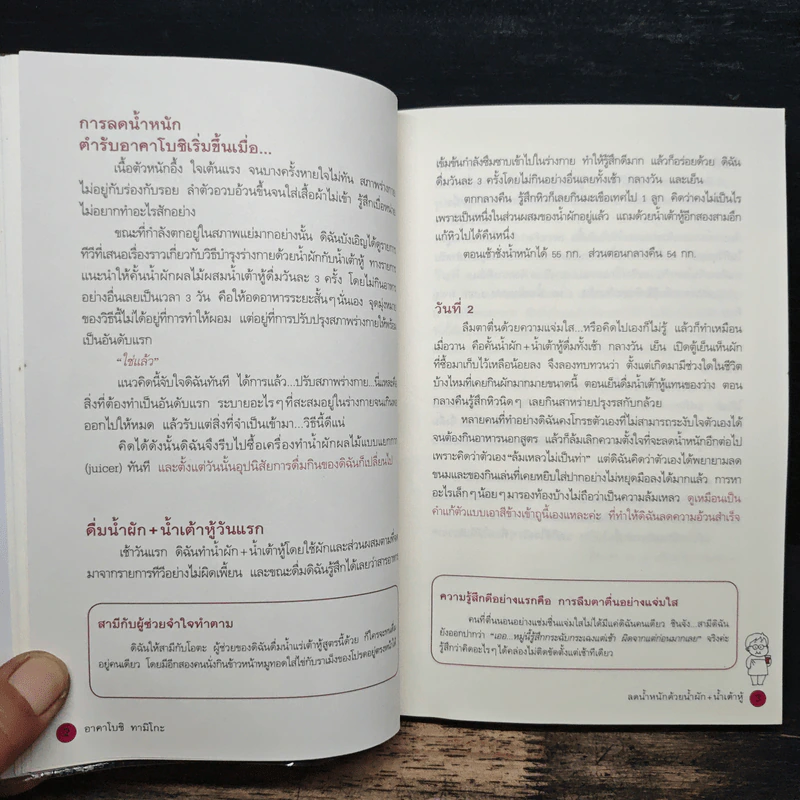 การลดน้ำหนัก
ตำรับอาคาโบชิเริ่มขึ้นเมื่อ...
เนื้อตัวหนักอึ้ง ใจเต้นแรง จนบางครั้งหายใจไม่ทัน สภาพร่างกาย
ไม่อยู่กับร่องกับรอย ลำตัวอวบอ้วนขึ้นจนใส่เสื้อผ้าไม่เข้า รู้สึกเบื่อหน่าย
ไม่อยากทำอะไรสักอย่าง
ขณะที่กำลังตกอยู่ในสภาพแย่มากอย่างนั้น ดิฉันบังเอิญได้ดูรายการ
ทีวีที่เสนอเรื่องราวเกี่ยวกับวิธีบำรุงร่างกายด้วยน้ำผักกับน้ำเต้าหู้ ทางรายการ
แนะนำให้คั้นน้ำผักผลไม้ผสมน้ำเต้าหู้ดื่มวันละ 3 ครั้ง โดยไม่กินอาหาร
อย่างอื่นเลยเป็นเวลา 3 วัน คือให้อดอาหารระยะสั้นๆนั่นเอง จุดมุ่งหมาย
ของวิธีนี้ไม่ได้อยู่ที่การทำให้ผอม แต่อยู่ที่การปรับปรุงสภาพร่างกายให้พร้อม
เป็นอันดับแรก
“ใช่แล้ว”
แนวคิดนี้จับใจดิฉันทันที ได้การแล้ว...ปรับสภาพร่างกาย...นี่แหละคือ
สิ่งที่ต้องทำเป็นอันดับแรก ระบายอะไรๆที่สะสมอยู่ในร่างกายจนเกินพอ
ออกไปให้หมด แล้วรับแต่สิ่งที่จำเป็นเข้ามา...วิธีนี้ดีแน่
คิดได้ดังนั้นดิฉันจึงรีบไปซื้อเครื่องทำน้ำผักผลไม้แบบแยกกาก
(juicer) ทันที และตั้งแต่วันนั้นอุปนิสัยการดื่มกินของดิฉันก็เปลี่ยนไป
ดื่มน้ำผัก + น้ำเต้าหู้วันแรก
เช้าวันแรก ดิฉันทำน้ำผัก + น้ำเต้าหู้โดยใช้ผักและส่วนผสมตามที่จด
มาจากรายการทีวีอย่างไม่ผิดเพี้ยน และขณะดื่มดิฉันรู้สึกได้เลยว่าสารอาหาร
สามีกับผู้ช่วยจำใจทำตาม
ดิฉันให้สามีกับโอตะ ผู้ช่วยของดิฉันดื่มน้ำแร่เต้าหู้สูตรนี้ด้วย ก็ใครจะทนดื่ม
อยู่คนเดียว โดยมีอีกสองคนนั่งกินข้าวหน้าหมูทอดใส่ไข่กับราเม็งของโปรดอยู่ตรงหน้าได้
2 อาคาโบชิ ทามิโกะ
เข้มข้นกำลังซึมซาบเข้าไปในร่างกาย ทำให้รู้สึกดีมาก แล้วก็อร่อยด้วย ดิฉัน
ดื่มวันละ 3 ครั้งโดยไม่กินอย่างอื่นเลยทั้งเช้า กลางวัน และเย็น
ตกกลางคืน รู้สึกหิวก็เลยกินมะเขือเทศไป 1 ลูก คิดว่าคงไม่เป็นไร
เพราะเป็นหนึ่งในส่วนผสมของน้ำผักอยู่แล้ว แถมด้วยน้ำเต้าหู้อีกสองสามอึก
แก้หิวไปได้คืนหนึ่ง
ตอนเช้าชั่งน้ำหนักได้ 55 กก. ส่วนตอนกลางคืน 54 กก.
วันที่ 2
ลืมตาตื่นด้วยความแจ่มใส...หรือคิดไปเองก็ไม่รู้ แล้วก็ทำเหมือน
เมื่อวาน คือคั้นน้ำผัก + น้ำเต้าหู้ดื่มทั้งเช้า กลางวัน เย็น เปิดตู้เย็นเห็นผัก
ที่ซื้อมาเก็บไว้เหลือน้อยลง จึงลองทบทวนว่า ตั้งแต่เกิดมามีช่วงใดในชีวิต
บ้างไหมที่เคยกินผักมากมายขนาดนี้ ตอนเย็นดื่มน้ำเต้าหู้แทนของว่าง ตอน
กลางคืนรู้สึกหิวนิดๆ เลยกินสาหร่ายปรุงรสกับกล้วย
หลายคนที่ทำอย่างดิฉันคงโกรธตัวเองที่ไม่สามารถระงับใจตัวเองได้
จนต้องกินอาหารนอกสูตร แล้วก็ล้มเลิกความตั้งใจที่จะลดน้ำหนักอีกต่อไป
เพราะคิดว่าตัวเอง “ล้มเหลวไม่เป็นท่า” แต่ดิฉันคิดว่าตัวเองได้พยายามลด
ขนมและของกินเล่นที่เคยหยิบใส่ปากอย่างไม่หยุดมือลงได้มากแล้ว การหา
อะไรเล็กๆน้อยๆมารองท้องบ้างไม่ถือว่าเป็นความล้มเหลว ดูเหมือนเป็น
คำแก้ตัวแบบเอาสีข้างเข้าถูนี้เองแหละค่ะ ที่ทำให้ดิฉันลดความอ้วนสำเร็จ
ความรู้สึกดีอย่างแรกคือ การลืมตาตื่นอย่างแจ่มใส
คนที่ตื่นนอนอย่างแช่มชื่นแจ่มใสไม่ได้มีแค่ดิฉันคนเดียว ชินจัง...สามีดิฉัน
ยังออกปากว่า “เออ...หมู่นี้รู้สึกกระฉับกระเฉงแต่เช้า ผิดจากแต่ก่อนมากเลย” จริงค่ะ
รู้สึกว่าคิดอะไรๆ ได้คล่องไม่ติดขัดตั้งแต่เช้าทีเดียว
ลดน้ำหนักด้วยน้ำผัก + น้ำเต้าหู้ 3